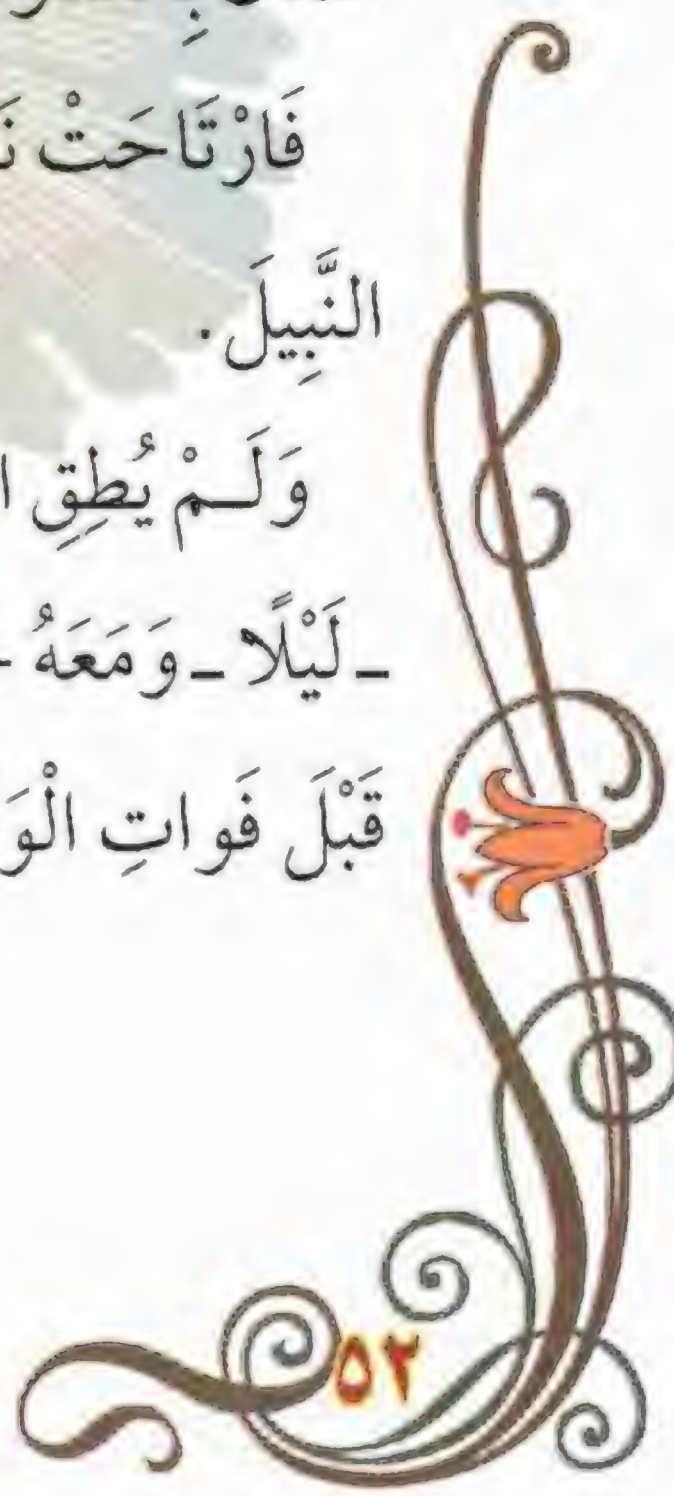 فَارْتَاحَتْ
النَّبِيلَ.
وَلَـمْ يُطِقِ
ـ لَيْلًا ـ وَمَعَهُ ـ
قَبْلَ فَواتِ
٥٢